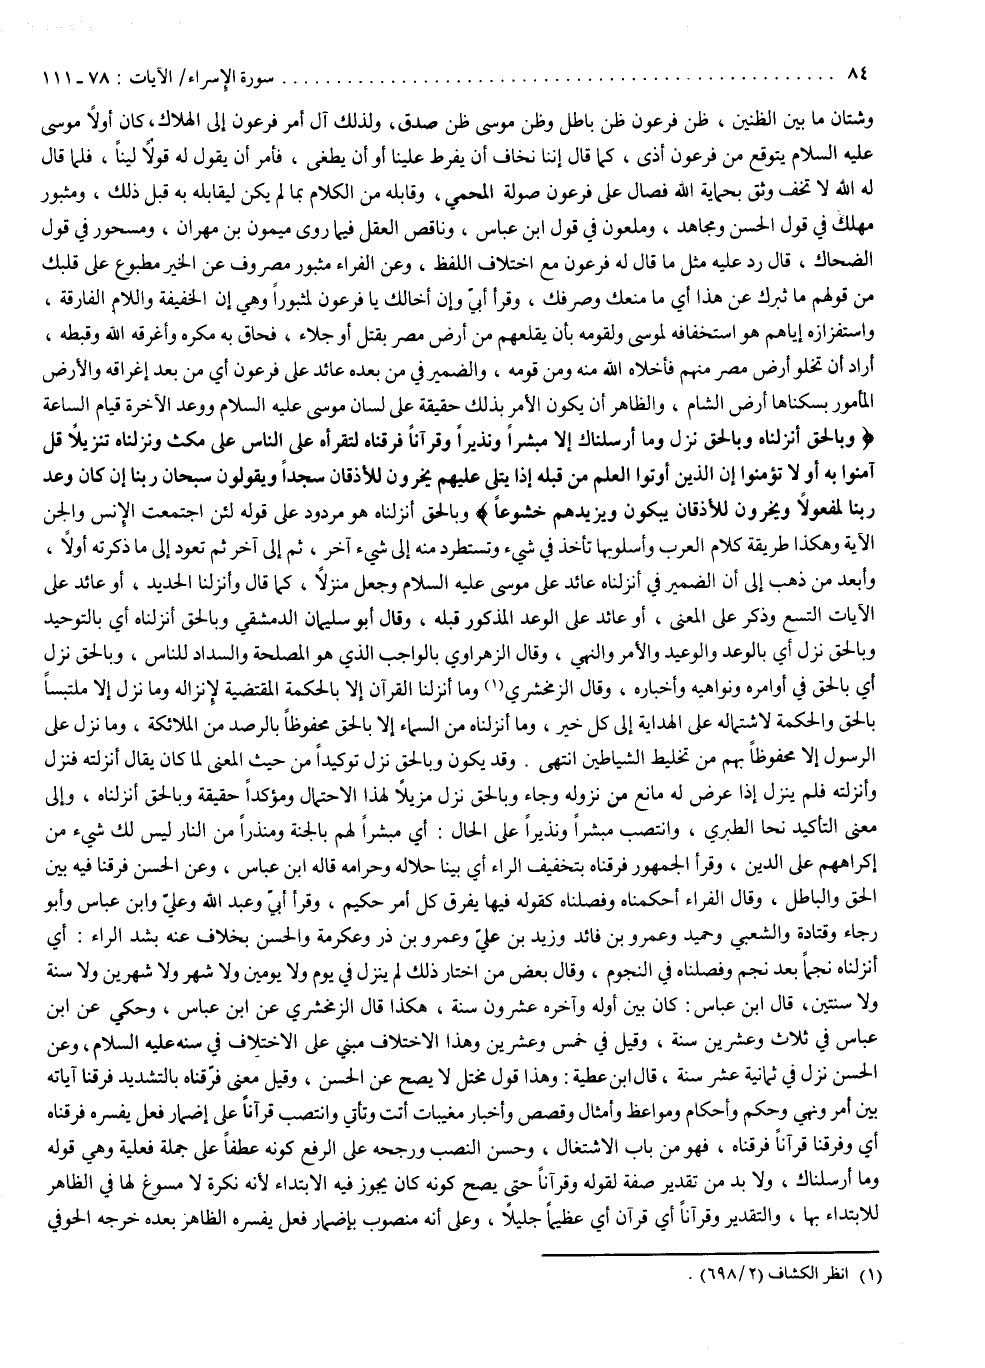 ٨٤ ........................................................ سورة الإسراء/ الآيات : ٧٨ ـ ١١١
وشتان ما بين الظنين ، ظن فرعون ظن باطل وظن موسى ظن صدق، ولذلك آل أمر فرعون إلى الهلاك، كان أولاً موسى
عليه السلام يتوقع من فرعون أذى ، كما قال إننا نخاف أن يفرط علينا أو أن يطغى ، فأمر أن يقول له قولاً ليناً ، فلما قال
له الله لا تخف وثق بحماية الله فصال على فرعون صولة المحمي، وقابله من الكلام بما لم يكن ليقابله به قبل ذلك ، ومثبور
مهلك في قول الحسن ومجاهد ، وملعون في قول ابن عباس ، وناقص العقل فيما روى ميمون بن مهران ، ومسحور في قول
الضحاك ، قال رد عليه مثل ما قال له فرعون مع اختلاف اللفظ ، وعن الفراء مثبور مصروف عن الخير مطبوع على قلبك
من قولهم ما ثبرك عن هذا أي ما منعك وصرفك ، وقرأ أبيّ وإن أخالك يا فرعون لمثبوراً وهي إن الخفيفة واللام الفارقة ،
واستفزازه إياهم هو استخفافه لموسى ولقومه بأن يقلعهم من أرض مصر بقتل أو جلاء ، فحاق به مكره وأغرقه الله وقبطه ،
أراد أن تخلو أرض مصر منهم فأخلاه الله منه ومن قومه ، والضمير في من بعده عائد على فرعون أي من بعد إغراقه والأرض
المأمور بسكناها أرض الشام ، والظاهر أن يكون الأمر بذلك حقيقة على لسان موسى عليه السلام ووعد الآخرة قيام الساعة
﴿ وبالحق أنزلناه وبالحق نزل وما أرسلناك إلا مبشراً ونذيراً وقرآناً فرقناه لتقرأه على الناس على مكث ونزلناه تنزيلاً قل
آمنوا به أو لا تؤمنوا إن الذين أوتوا العلم من قبله إذا يتلى عليهم يخرون للأذقان سجداً ويقولون سبحان ربنا إن كان وعد
ربنا لمفعولاً ويخرون للأذقان يبكون ويزيدهم خشوعاً ﴾ وبالحق أنزلناه هو مردود على قوله لئن اجتمعت الإنس والجن
الآية وهكذا طريقة كلام العرب وأسلوبها تأخذ في شيء وتستطرد منه إلى شيء آخر ، ثم إلى آخر ثم تعود إلى ما ذكرته أولاً ،
وأبعد من ذهب إلى أن الضمير في أنزلناه عائد على موسى عليه السلام وجعل منزلاً ، كما قال وأنزلنا الحديد ، أو عائد على
الآيات التسع وذكر على المعنى ، أو عائد على الوعد المذكور قبله ، وقال أبو سليمان الدمشقي وبالحق أنزلناه أي بالتوحيد
وبالحق نزل أي بالوعد والوعيد والأمر والنهي ، وقال الزهراوي بالواجب الذي هو المصلحة والسداد للناس ، وبالحق نزل
أي بالحق في أوامره ونواهيه وأخباره ، وقال الزمخشري(١) وما أنزلنا القرآن إلا بالحكمة المقتضية لإنزاله وما نزل إلا ملتبساً
بالحق والحكمة لاشتماله على الهداية إلى كل خير ، وما أنزلناه من السماء إلا بالحق محفوظاً بالرصد من الملائكة ، وما نزل على
الرسول إلا محفوظاً بهم من تخليط الشياطين انتهى . وقد يكون وبالحق نزل توكيداً من حيث المعنى لما كان يقال أنزلته فنزل
وأنزلته فلم ينزل إذا عرض له مانع من نزوله وجاء وبالحق نزل مزيلاً لهذا الاحتمال ومؤكداً حقيقة وبالحق أنزلناه ، وإلى
معنى التأكيد نحا الطبري ، وانتصب مبشراً ونذيراً على الحال : أي مبشراً لهم بالجنة ومنذراً من النار ليس لك شيء من
إكراههم على الدين ، وقرأ الجمهور فرقناه بتخفيف الراء أي بينا حلاله وحرامه قاله ابن عباس ، وعن الحسن فرقنا فيه بين
الحق والباطل ، وقال الفراء أحكمناه وفصلناه كقوله فيها يفرق كل أمر حكيم ، وقرأ أبيّ وعبد الله وعليّ وابن عباس وأبو
رجاء وقتادة والشعبي وحميد وعمرو بن فائد وزيد بن عليّ وعمرو بن ذر وعكرمة والحسن بخلاف عنه بشد الراء : أي
أنزلناه نجماً بعد نجم وفصلناه في النجوم ، وقال بعض من اختار ذلك لم ينزل في يوم ولا يومين ولا شهر ولا شهرين ولا سنة
ولا سنتين، قال ابن عباس: كان بين أوله وآخره عشرون سنة ، هكذا قال الزمخشري عن ابن عباس ، وحكي عن ابن
عباس في ثلاث وعشرين سنة ، وقيل في خمس وعشرين وهذا الاختلاف مبني على الاختلاف في سنه عليه السلام، وعن
الحسن نزل في ثمانية عشر سنة ، قال ابن عطية : وهذا قول مختل لا يصح عن الحسن ، وقيل معنى فرّقناه بالتشديد فرقنا آياته
بين أمر ونهي وحكم وأحكام ومواعظ وأمثال وقصص وأخبار مغيبات أتت وتأتي وانتصب قرآناً على إضمار فعل يفسره فرقناه
أي وفرقنا قرآناً فرقناه ، فهو من باب الاشتغال ، وحسن النصب ورجحه على الرفع كونه عطفاً على جملة فعلية وهي قوله
وما أرسلناك ، ولا بد من تقدير صفة لقوله وقرآناً حتى يصح كونه كان يجوز فيه الابتداء لأنه نكرة لا مسوغ لها في الظاهر
للابتداء بها ، والتقدير وقرآناً أي قرآن أي عظيماً جليلاً ، وعلى أنه منصوب بإضمار فعل يفسره الظاهر بعده خرجه الحوفي
(١) انظر الكشاف (٦٩٨/٢) .